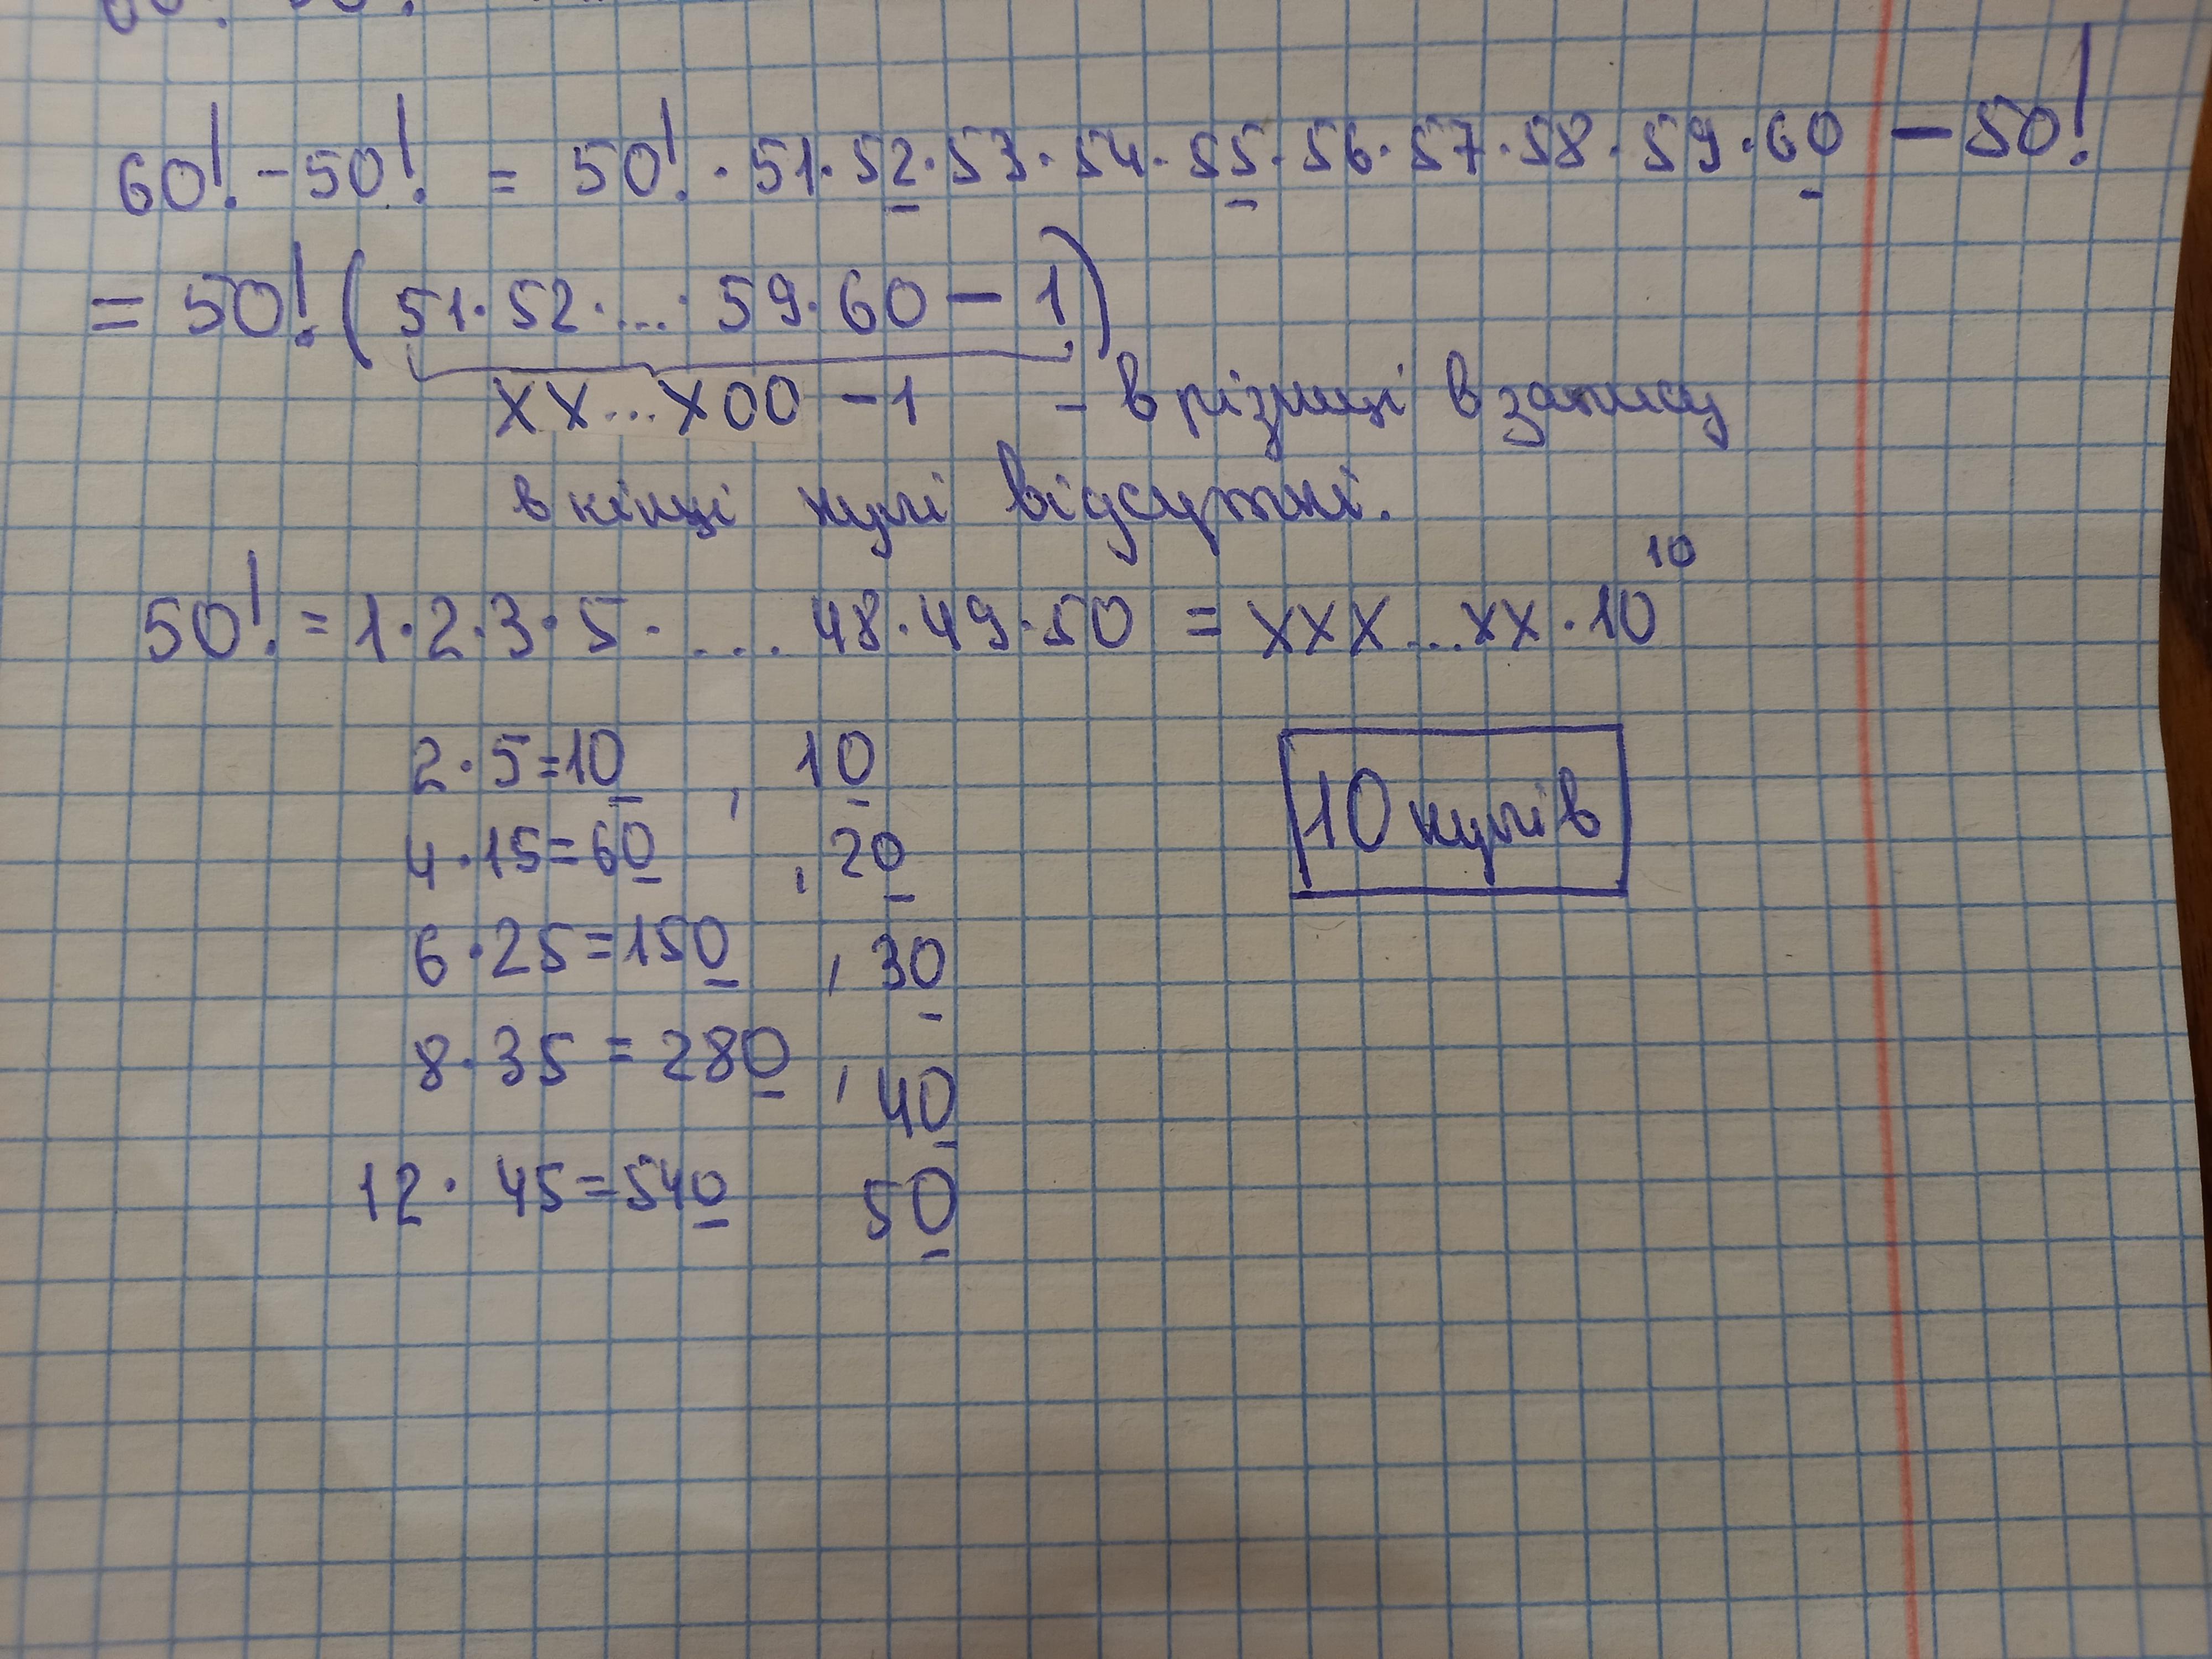 60! - 50! = 50! · 51 · 52 · 53 · 54 · 55 · 56 · 57 · 58 · 59 · 60 - 50!
= 50! ( 51 · 52 · ... · 59 · 60 - 1 )
XX...X00 - 1 - в різниці в запису
в кінці нулі відсутні.
50! = 1 · 2 · 3 · 5 · ... 48 · 49 · 50 = XXX...XX · 10¹⁰
2 · 5 = 10 , 10
4 · 15 = 60 , 20
6 · 25 = 150 , 30
8 · 35 = 280 , 40
12 · 45 = 540 50
10 нулів